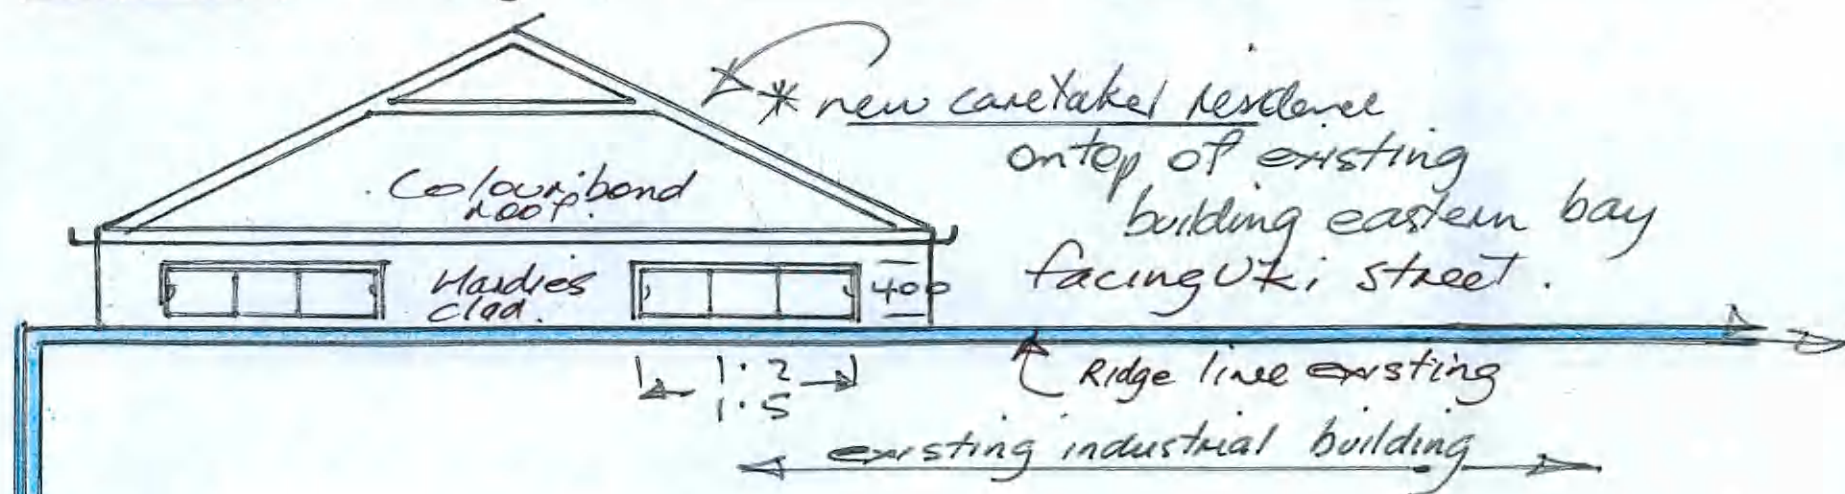 * new caretaker residence
ontop of existing
building eastern bay
facing Uki street.
Colourbond
roof.
Hardies
clad.
400
1.2
1.5
Ridge line existing
existing industrial building